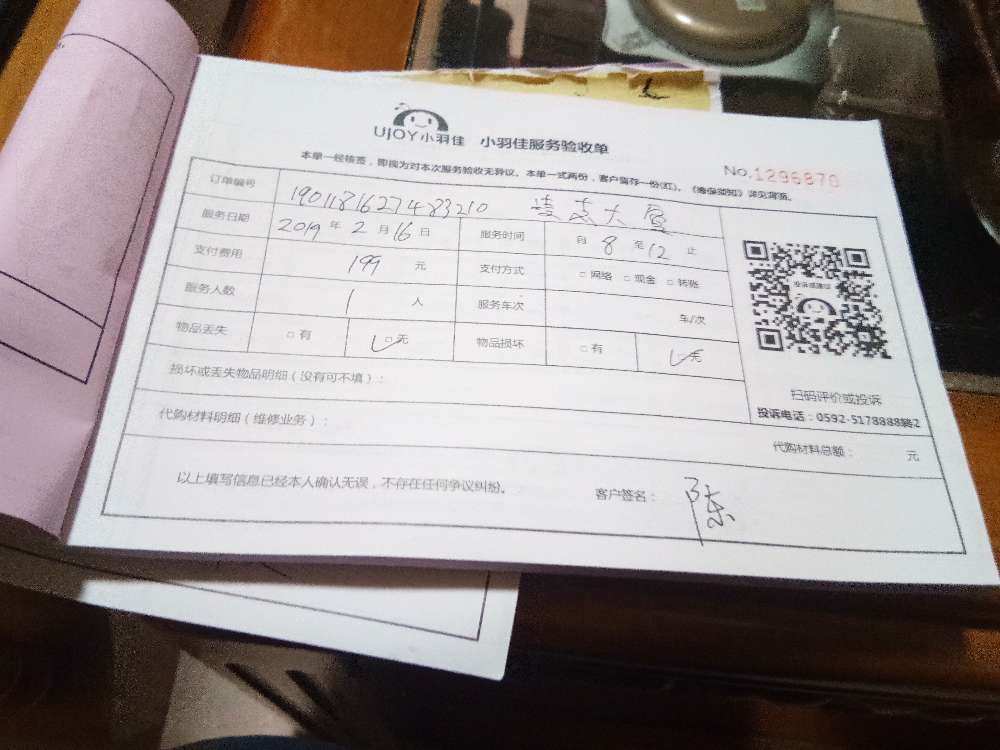 UJOY小羽佳 小羽佳服务验收单
No.1296870
本单一经核签，即视为对本次服务验收无异议。本单一式两份，客户留存一份(红)。《海保须知》详见背面。
订单编号 1901181627483210 凌志大厦
服务日期 2019 年 2 月 16 日 服务时间 自 8 至 12 止
支付费用 199 元 支付方式 □ 网络 □ 现金 □ 转账
服务人数 1 人 服务车次 车/次
物品丢失 □ 有 □ 无 物品损坏 □ 有 □ 无
损坏或丢失物品明细（没有可不填）：
代购材料明细（维修业务）：
代购材料总额： 元
以上填写信息已经本人确认无误，不存在任何争议纠纷。 客户签名： 陈
扫码评价或投诉
投诉电话：0592-5178888转2